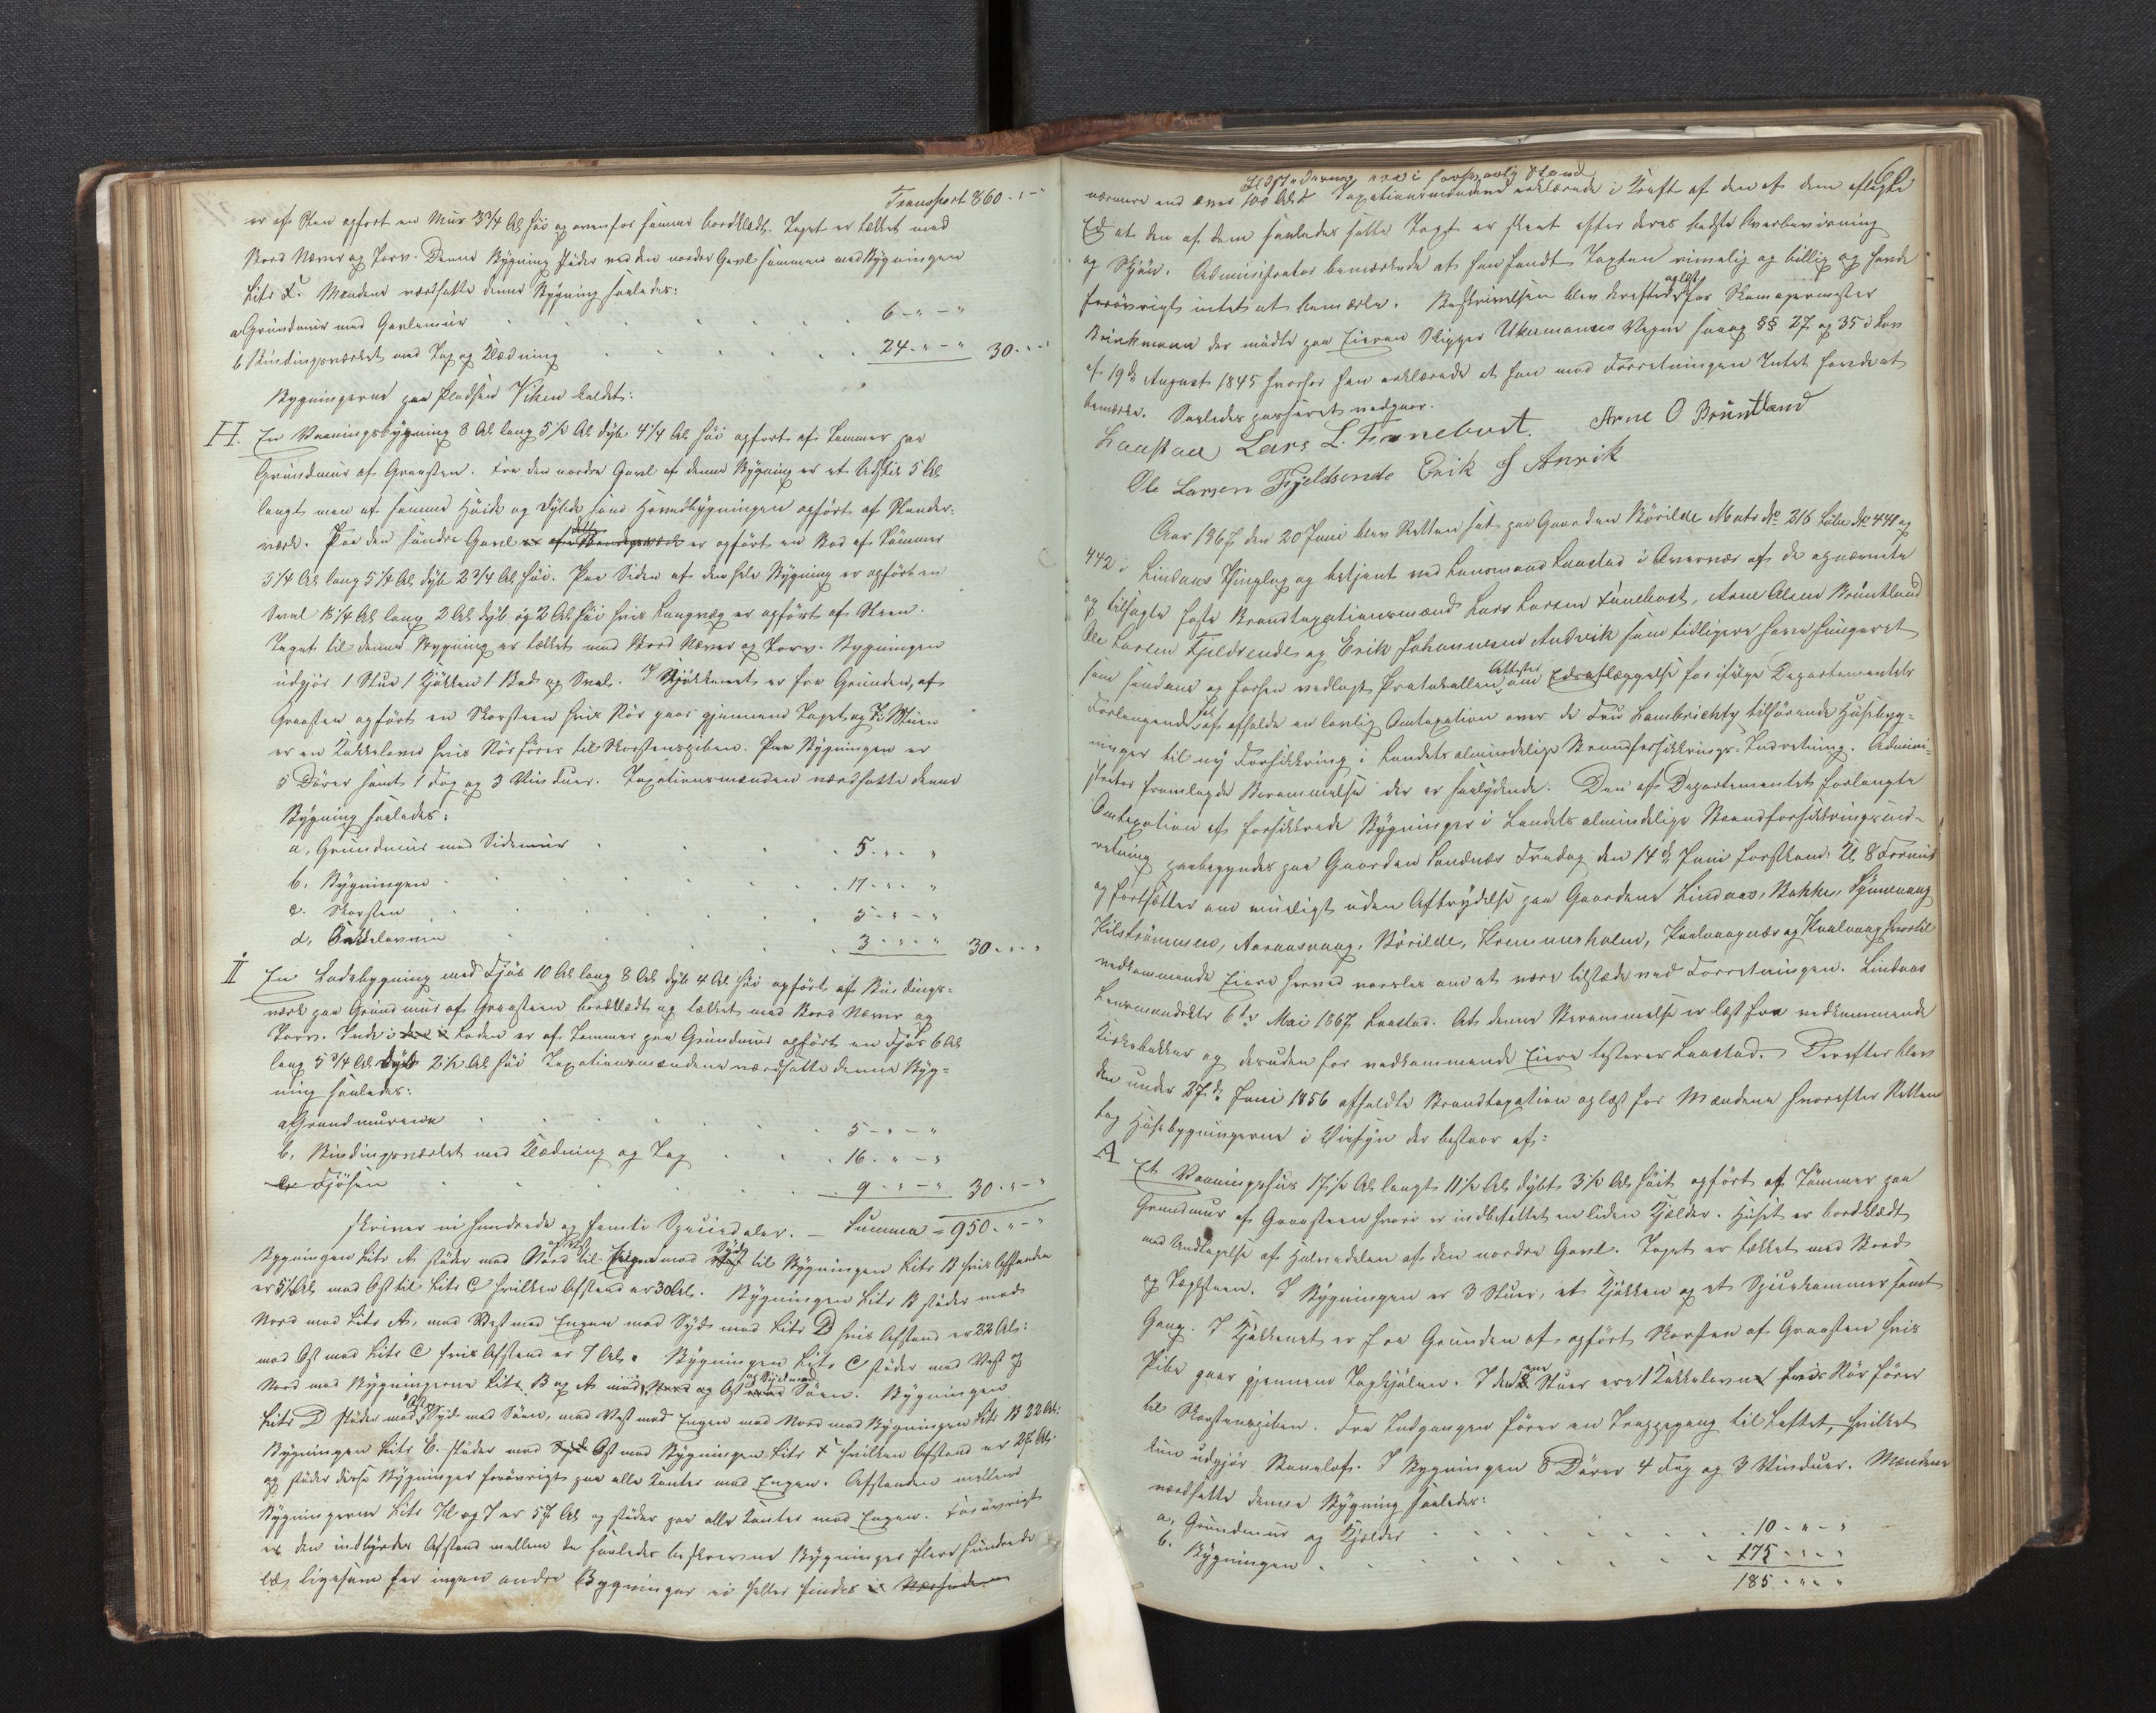 Transport 860 - " - "
er af Sten opført en Mur 3 3/4 Al høi og ovenfor samme bordklædt. Taget er tækket med
Bord Næver og Torv. Denne Bygning støder ved den nordre Gavl sammen med Bygningen
Litr F. Mændene værdsatte denne Bygning saaledes:
a Grundmur med Gavlemur 6 - " - "
b Bindingsværket med Tag og Klædning 24 - " - " 30 - " - "
Bygningerne paa Pladsen Viken kaldet:
H. En Vaaningsbygning 8 Al lang 5 1/2 Al dyb 4 1/4 Al høi opført af Tømmer paa
Grundmur af Graasten. Fra den nordre Gavl af denne Bygning er et Udskud 5 Al
langt men af samme Høide og Dybde som Hovedbygningen opført af Stander-
værk. Paa den søndre Gavl er opført en Bod af Tømmer
5 1/4 Al lang 5 1/4 Al dyb 2 3/4 Al høi. Paa Siden af den hele Bygning er opført en
Sval 18 1/4 Al lang 2 Al dyb og 2 Al høi hvis Langvæg er opført af Steen.
Taget til denne Bygning er tækket med Bord Næver og Torv. Bygningen
udgjør 1 Stue 1 Kjøkken 1 Bod og Sval. I Kjøkkenet er fra Grunden, af
Graasten opført en Skorsteen hvis Rør gaar gjennem Taget og I Stuen
er en Kakkelovn hvis Rør fører til Skorstenspiben. Paa Bygningen er
5 Dører samt 1 Fag og 3 Vinduer. Taxationsmænden værdsatte denne
Bygning saaledes:
a, Grundmur med Sidemur 5 - " - "
b, Bygningen 17 - " - "
c. Skorsten 5 - " - "
d, Kakkelovnen 3 - " - " 30 - " - "
I En Ladebygning med Fjøs 10 Al lang 8 Al dyb 4 Al høi opført af Bindings-
værk paa Grundmur af Graasteen bordklædt og tækket med Bord Næver og
Torv. Inde i Laden er af Tømmer paa Grundmur opført en Fjøs 6 Al
lang 5 3/4 Al dyb 2 1/2 Al høi Taxationsmændene værdsatte denne Byg-
ning saaledes:
a, Grundmurene 5 - " - "
b, Bindingsværket med Klædning og Tag 16 - " - "
c Fjøsen 9 - " - " 30 - " - "
skriver ni hundrede og femti Speciedaler. - Summa = 950 - " - "
Bygningen Litr A støder mod Nord og Vest til Engen mod Syd til Bygningen Litr B hvis Afstanden
er 5 1/2 Al mod Øst til Litr C hvilken Afstand er 30 Al. Bygningen Litr B støder mod
Nord mod Litr A, mod Vest mod Engen mod Syd mod Litr D hvis Afstand er 22 Al:
mod Øst mod Litr C hvis Afstand er 7 Al. Bygningen Litr C støder mod Vest og
Nord mod Bygningerne Litr B og A mod og Øst og Syd mod Søen. Bygningen
Litr D støder mod Øst og Syd mod Søen, mod Vest mod Engen mod Nord mod Bygningen Litr B 22 Al:
Bygningen Litr E. støder mod Øst mod Bygningen Litr F hvilken Afstand er 27 Al.
og støder disse Bygninger forøvrigt paa alle Kanter mod Engen. Afstanden mellem
Bygningerne Litr H og I er 57 Al og støder paa alle Kanter mod Engen. Forøvrigt
er den indbyrdes Afstand mellem de saaledes beskrevne Bygninger flere hundrede
Al, ligesom her ingen andre Bygninger ei heller findes
66
nærmere end over 100 Al. Taxationsmændene erklærede i Kraft af den af dem aflagte
Ed at den af dem saaledes satte Taxt er skeet efter deres bedste Overbeviisning
og Skjøn. Administrator bemærkede at han fandt Taxten rimelig og billig og havde
forøvrigt intet at bemærke. Beskrivelsen blev derefter oplæst for Skomagermester
Brinkmann der mødte paa Eieren Skipper Ukermanns Vegne saa og §§ 27 og 35 i Lov
af 19de August 1845 hvorfor han erklærede at han mod Forretningen Intet havde at
bemærke. Saaledes passeret vedgaar.
Laastad Lars L. Tunebust. Arne O Bruntland
Ole Larsen Fjeldsende Erik J Anvik
Aar 1867 den 20 Juni blev Retten sat paa Gaarden Børilde Matr No 216 Løbe No 441 og
442 i Lindaas Thinglag og betjent ved Lensmand Laastad i Overvær af de opnævnte
og tilsagte faste Brandtaxationsmænd Lars Larsen Tunebust, Arne Olsen Bruntland
Ole Larsen Fjeldsende og Erik Johannesen Andvik som tidligere have fungeret
som saadane og forsen vedlagt Protokollen Attester om Edsaflæggelse for ifølge Departementets
Forlangende at afholde en lovlig Omtaxation over de Fru Lambrichts tilhørende Huusbyg-
ninger til ny Forsikkring i Landets almindelige Brandforsikkrings-Indretning. Admini-
strator fremlagde Berammelse der er saalydende. Den af Departementet forlangte
Omtaxation af forsikkrede Bygninger i Landets almindelige Brandforsikkringsind-
retning paabegyndes paa Gaarden Sandnæs Fredag den 14de Juni førstkom: Kl 8 Formid
og fortsætter om mueligt uden Afbrydelse paa Gaardene Lindaas, Bakke, Spjonevaag
Kilstrømmen, Aaraasvaag, Børilde, Kremmerholm, Paalvaagnæs og Kaalvaag hvortil
vedkommende Eiere herved varsles om at være tilstæde ved Forretningen. Lindaas
Lensmandsktr 6te Mai 1867 Laastad. At denne Berammelse er læst fra vedkommende
Kirkebakker og desuden for vedkommende Eiere testerer Laastad. Derefter blev
den under 27de Juni 1856 afholdte Brandtaxation oplæst for Mændene hvorefter Retten
tog Huusbygningerne i Øiesyn der bestaar af:
A Et Vaaningshus 17 1/2 Al langt 11 1/2 Al dybt 3 1/2 Al høit opført af Tømmer paa
Grundmur af Graasteen hvori er indbefattet en liden Kjælder. Huset er bordklædt
med Undtagelse af Halvedelen af den nordre Gavl. Taget er tækket med Bord
og Taglsteen. I Bygningen er 3 Stuer, et Kjøkken og et Spiiskammer samt
Gang. I Kjøkkenet er fra Grunden af opført Skorsten af Graasten hvis
Pibe gaar gjennem Taghjelen. I den ene Stue er 1 Kakkelovn hvis Rør fører
til Skorstenspiben. Fra Indgangen fører en Trappegang til Loftet, hvilket
kun udgjør Røneloft. I Bygningen 8 Dører 4 Fag og 3 Vinduer. Mændene
værdsatte denne Bygning saaledes:
a, Grundmur og Kjelder 10 - " - "
b, Bygningen 175 - " - "
185 - " - "